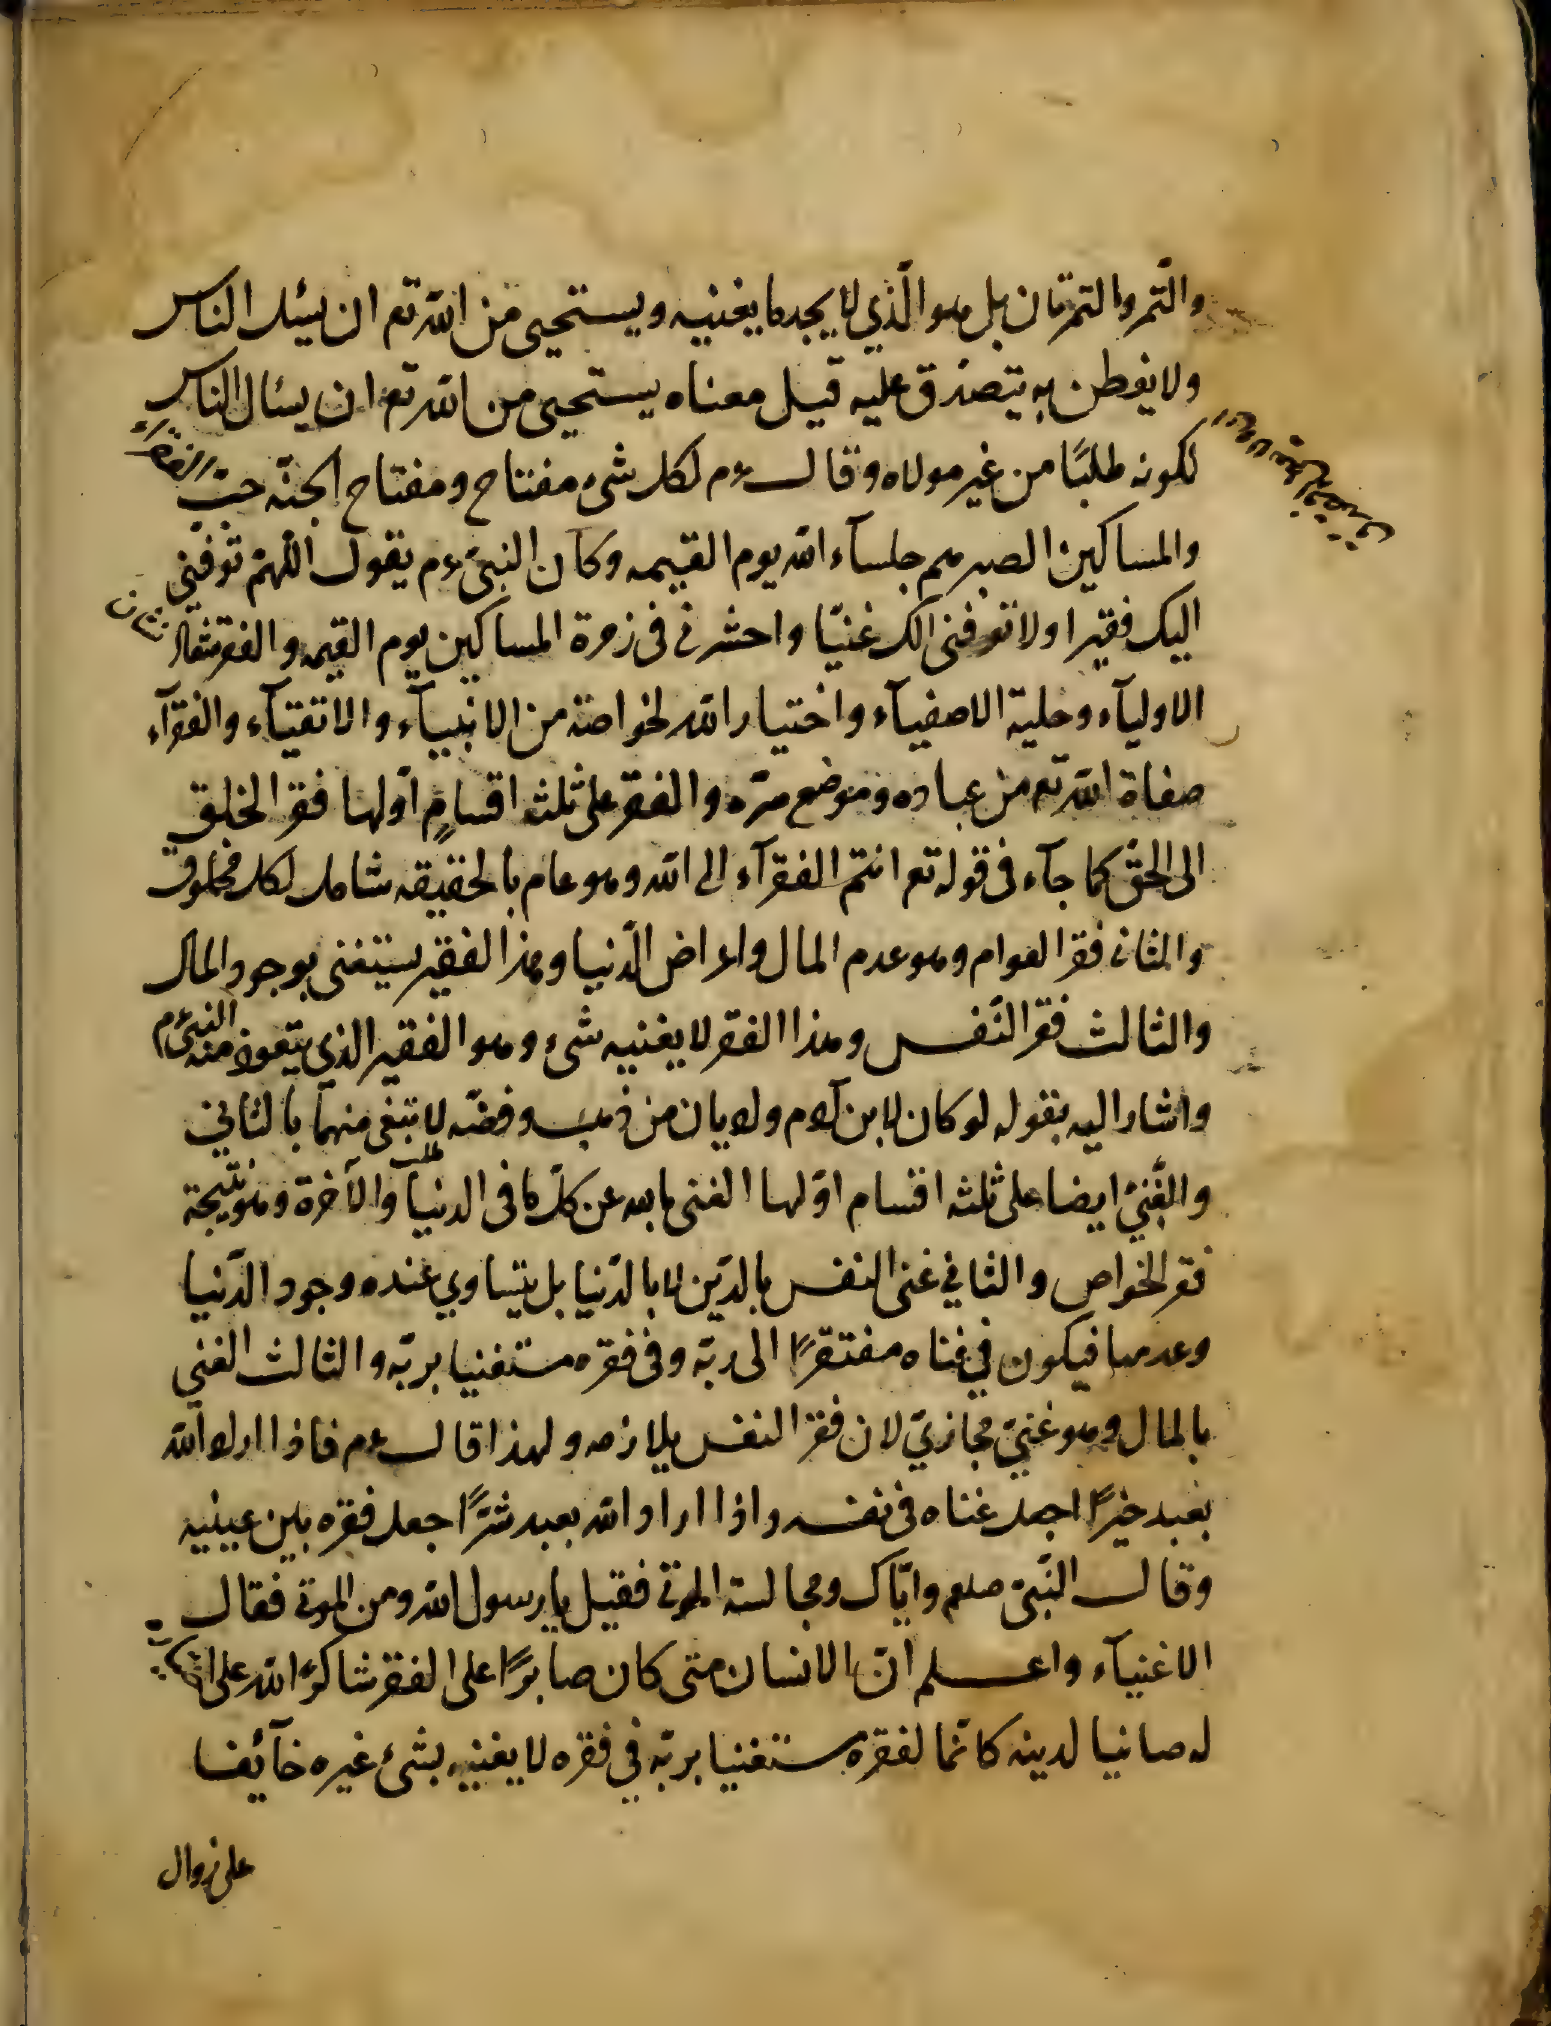 والتّمر والتمرتان بل هو الّذي لا يجد ما يغنيه ويستحيى من اللّه تع ان يسئل الناس
ولا يفطن به يتصدّق عليه قيل معناه يستحيى من اللّه تع ان يسئال الناس
لكونه طلبًا من غير مولاه وقال ءم لكل شىء مفتاح ومفتاح الجنّه حبّ الفقرآء
والمساكين الصبر هم جلسآء اللّه يوم القيمه وكان النبىّ ءم يقول اللّهمّ توفّنى
اليك فقيرا ولا توفنى اليك غنيّا واحشرنى فى زمرة المساكين يوم القيمه والفقر
الاوليآء وحلية الاصفيآء واختيار اللّه لخواصّه من الانبيآء والاتقيآء والفقرآء
صفاة اللّه تع من عباده وموضع سرّه والفقر على ثلثه اقسامٍ اوّلها فقر الخلق
الى الحقّ كما جآء فى قوله تع انتم الفقرآء الى اللّه وهو عام بالحقيقه شامل لكل مخلوق
والثانى فقر العوام وهو عدم المال واعراض الدّنيا وهذا الفقير يستغنى بوجود المال
والثالث فقر النّفس وهذا الفقر لا يغنيه شىء وهو الفقير الذي يتعوذ منه النبىّ ءم
واشار اليه بقوله لو كان لابن آدم واديان من ذهب وفضّه لا بتغى منهما بالثاني
والغنيّ ايضا على ثلثه اقسام اوّلها الغنى بالله عن كلّ ما فى الدنيا طلب والآخرة وهو نتيجة
فقر الخواص والثاني غنى النفس بالدّين لا بالدّنيا بل يتساوي عنده وجود الدّنيا
وعدمها فيكون في غناه مفتقرًا الى ربّه وفى فقره مستغنيا بربّه والثالث الغني
بالمال وهو غنيّ مجازيّ لان فقر النفس يلازمه ولهذا قال ءم فاذا اراد اللّه
بعبد خيرًا اجعل غناه فى نفسه واذا اراد اللّه بعبد شرًّا جعل فقره بين عينيه
وقال النّبىّ صلعم وايّاك ومجالسة الموتى فقيل يا رسول اللّه ومن الموتى فقال
الاغنيآء واعلم انّ الانسان متى كان صابرًا على الفقر شاكرًا اللّه على
له صانيا لدينه كاتما لفقره مستغنيا بربّه في فقره لا يغنيه بشىء غيره خآئفا
على زوال